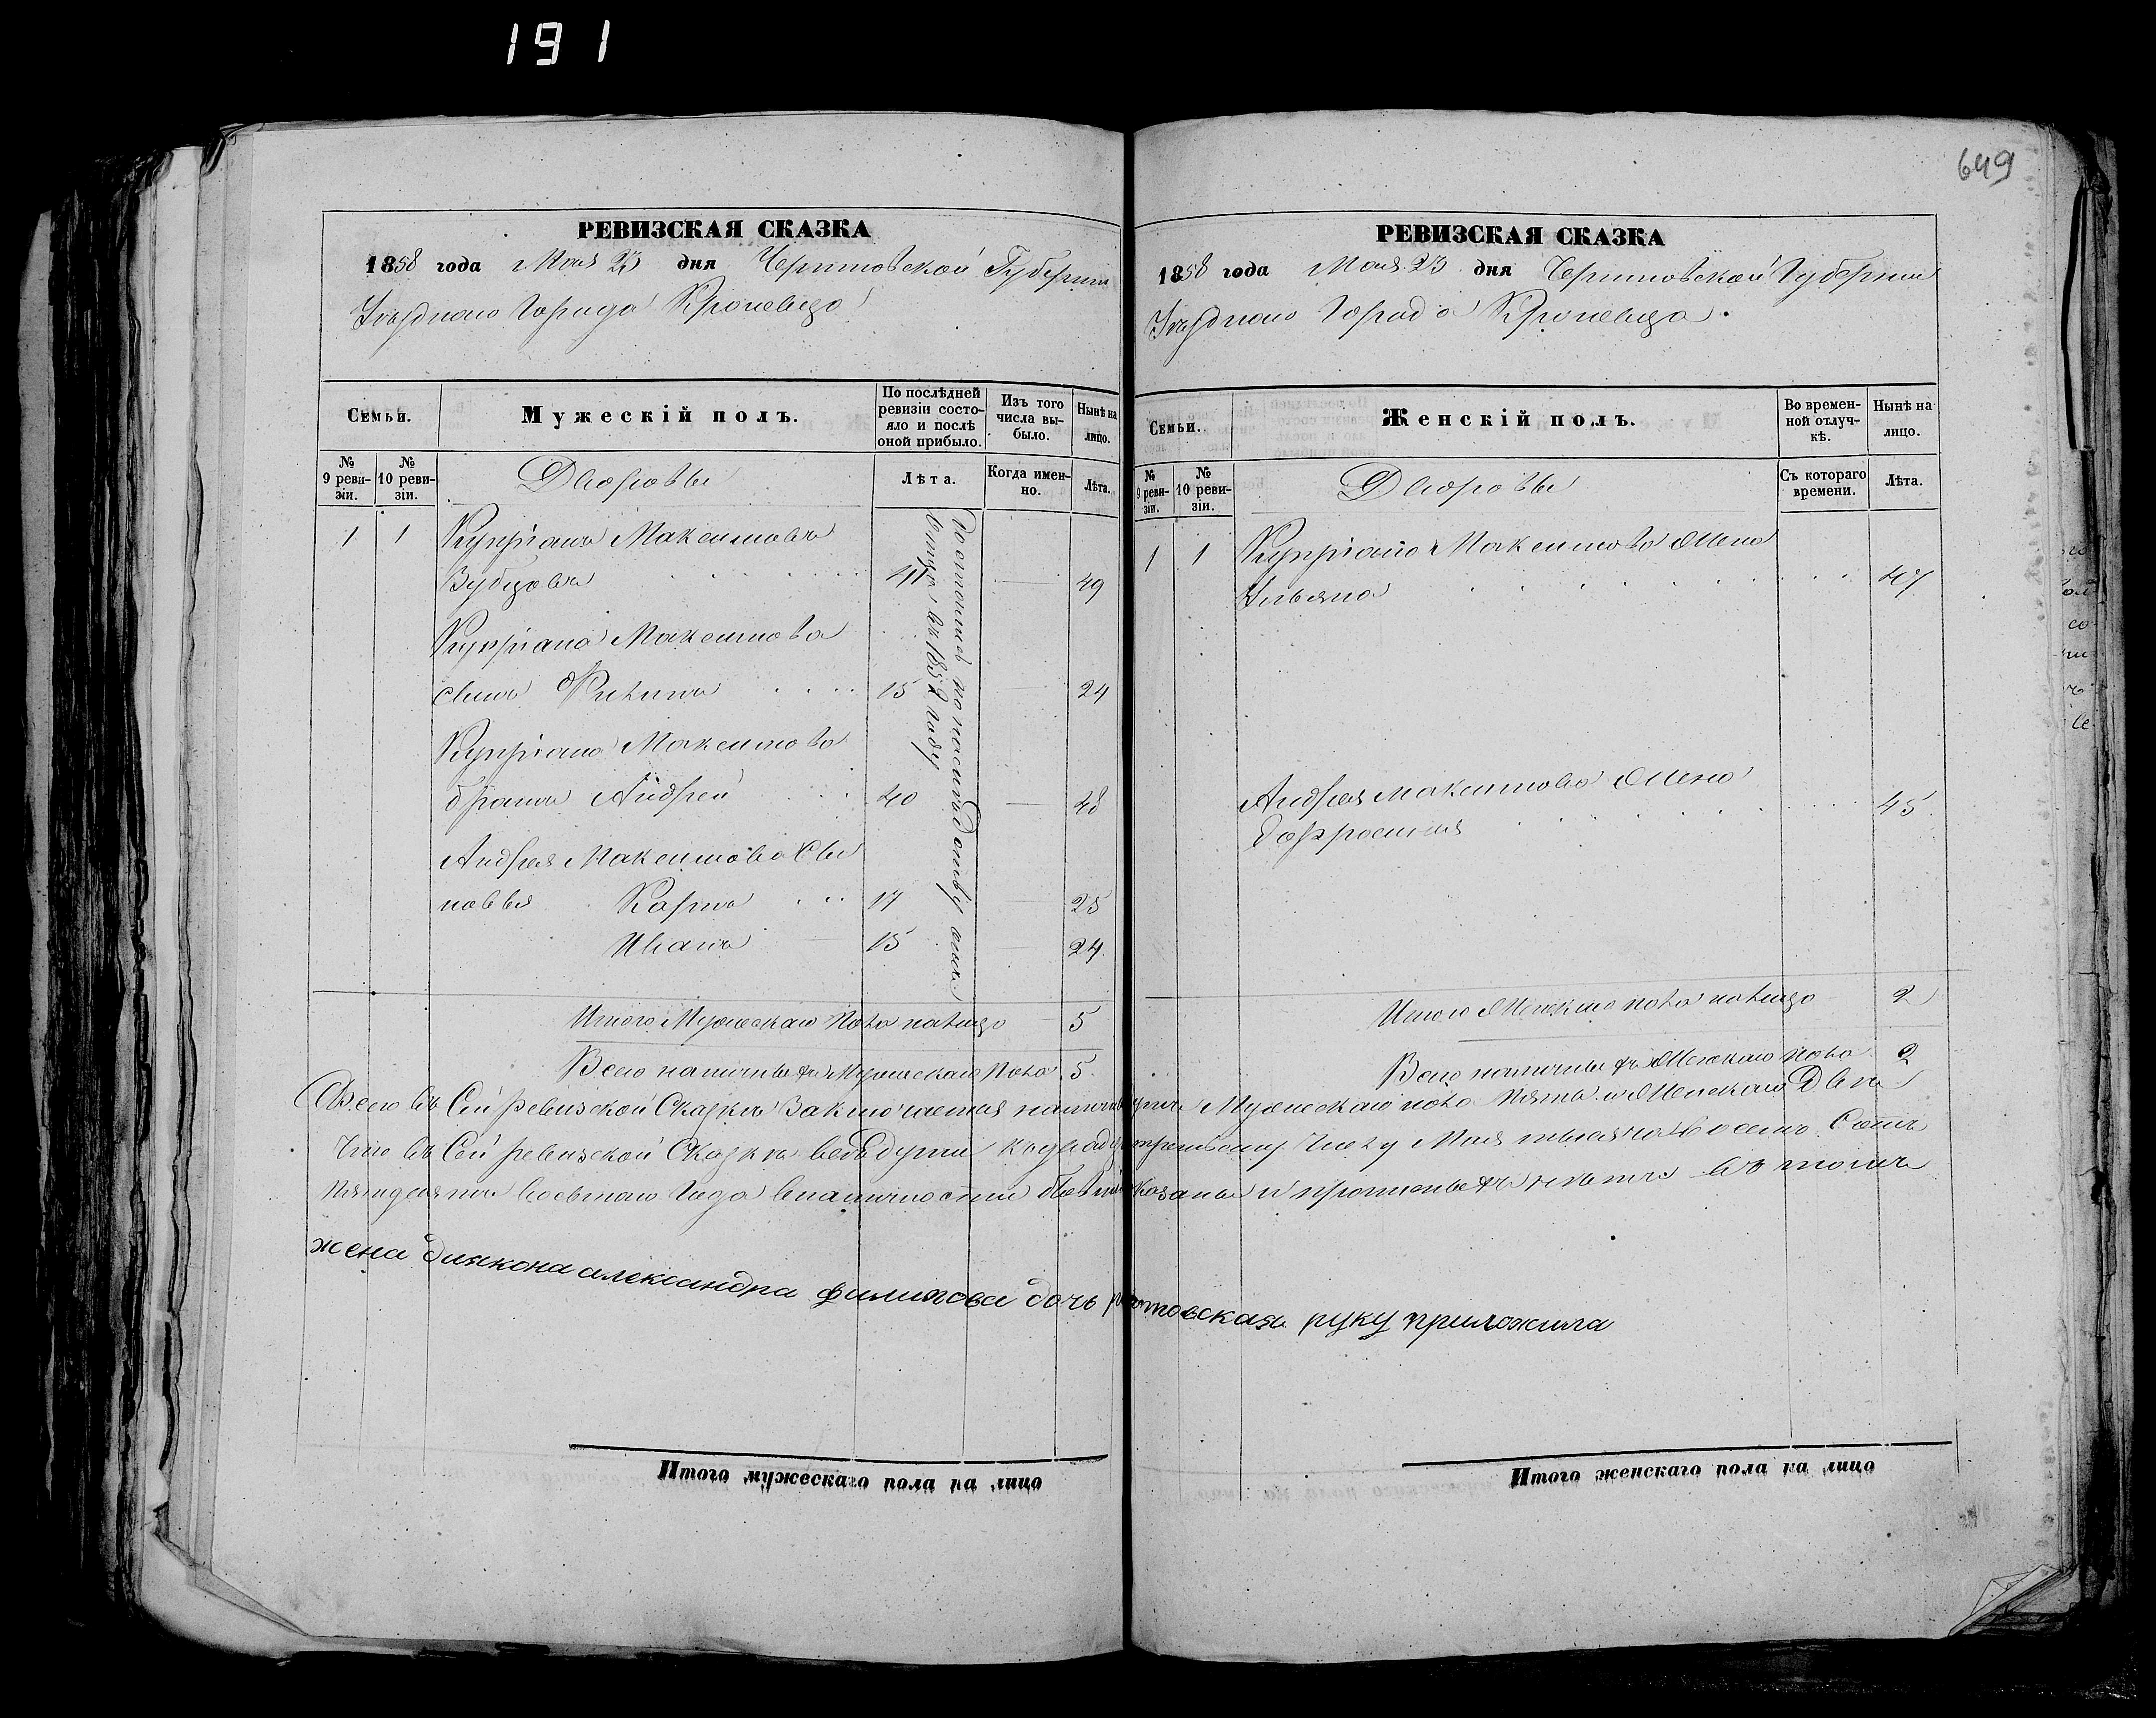 191
649
РЕВИЗСКАЯ СКАЗКА
1858 года Мая 23 дня Черниговской Губернии
Уѣзднаго Города Кролевца
Семьи.
Мужескій полъ.
По послѣдней ревизіи состояло и послѣ оной прибыло.
Изъ того числа выбыло.
Нынѣ на лицо.
№ 9 ревизіи.
№ 10 ревизіи.
Дворовые
Лѣта.
Когда именно.
Лѣта.
1 1 Купріанъ Максимовъ
Зубцовъ 41 49
Купріана Максимова
сынъ Филипъ 15 24
Купріана Максимова
братъ Андрей 40 48
Андрея Максимова Сы
новья Карпъ 17 25
Иванъ 15 24
Достались по наслѣдству отъ
отца въ 1852 году
Итого Мужескаго пола налицо 5
Всего наличныхъ Мужескаго пола 5
РЕВИЗСКАЯ СКАЗКА
1858 года Мая 23 дня Черниговской Губернии
Уѣзднаго Города Кролевца.
Семьи.
Женскій полъ.
Во временной отлучкѣ.
Нынѣ на лицо.
№ 9 ревизіи.
№ 10 ревизіи.
Дворовые
Съ котораго времени.
Лѣта.
1 1 Купріана Максимова Жена
Ульяна 47
Андрея Максимова Жена
Ефросинія 45
Итого Женскаго пола налицо 2
Всего наличныхъ Женскаго пола 2
Всего въ Сей ревизской Сказкѣ Заключается наличныхъ Мужескаго пола Пять и Женскаго Двѣ
Что въ Сей ревизской Сказкѣ всѣ Души къ двадцать третьему числу Мая тысяча Восемь Сотъ
пятьдесятъ восьмаго Года въ наличности бывшія показаны и прописныхъ нѣтъ въ томъ
жена диякона александра филипова дочь руку приложила
Итого мужескаго пола на лицо
Итого женскаго пола на лицо